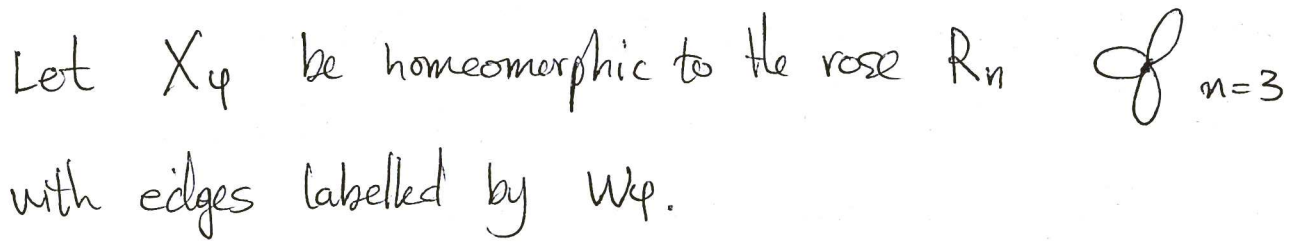 Let Xφ be homeomorphic to the rose Rn n=3
with edges labelled by Wφ.